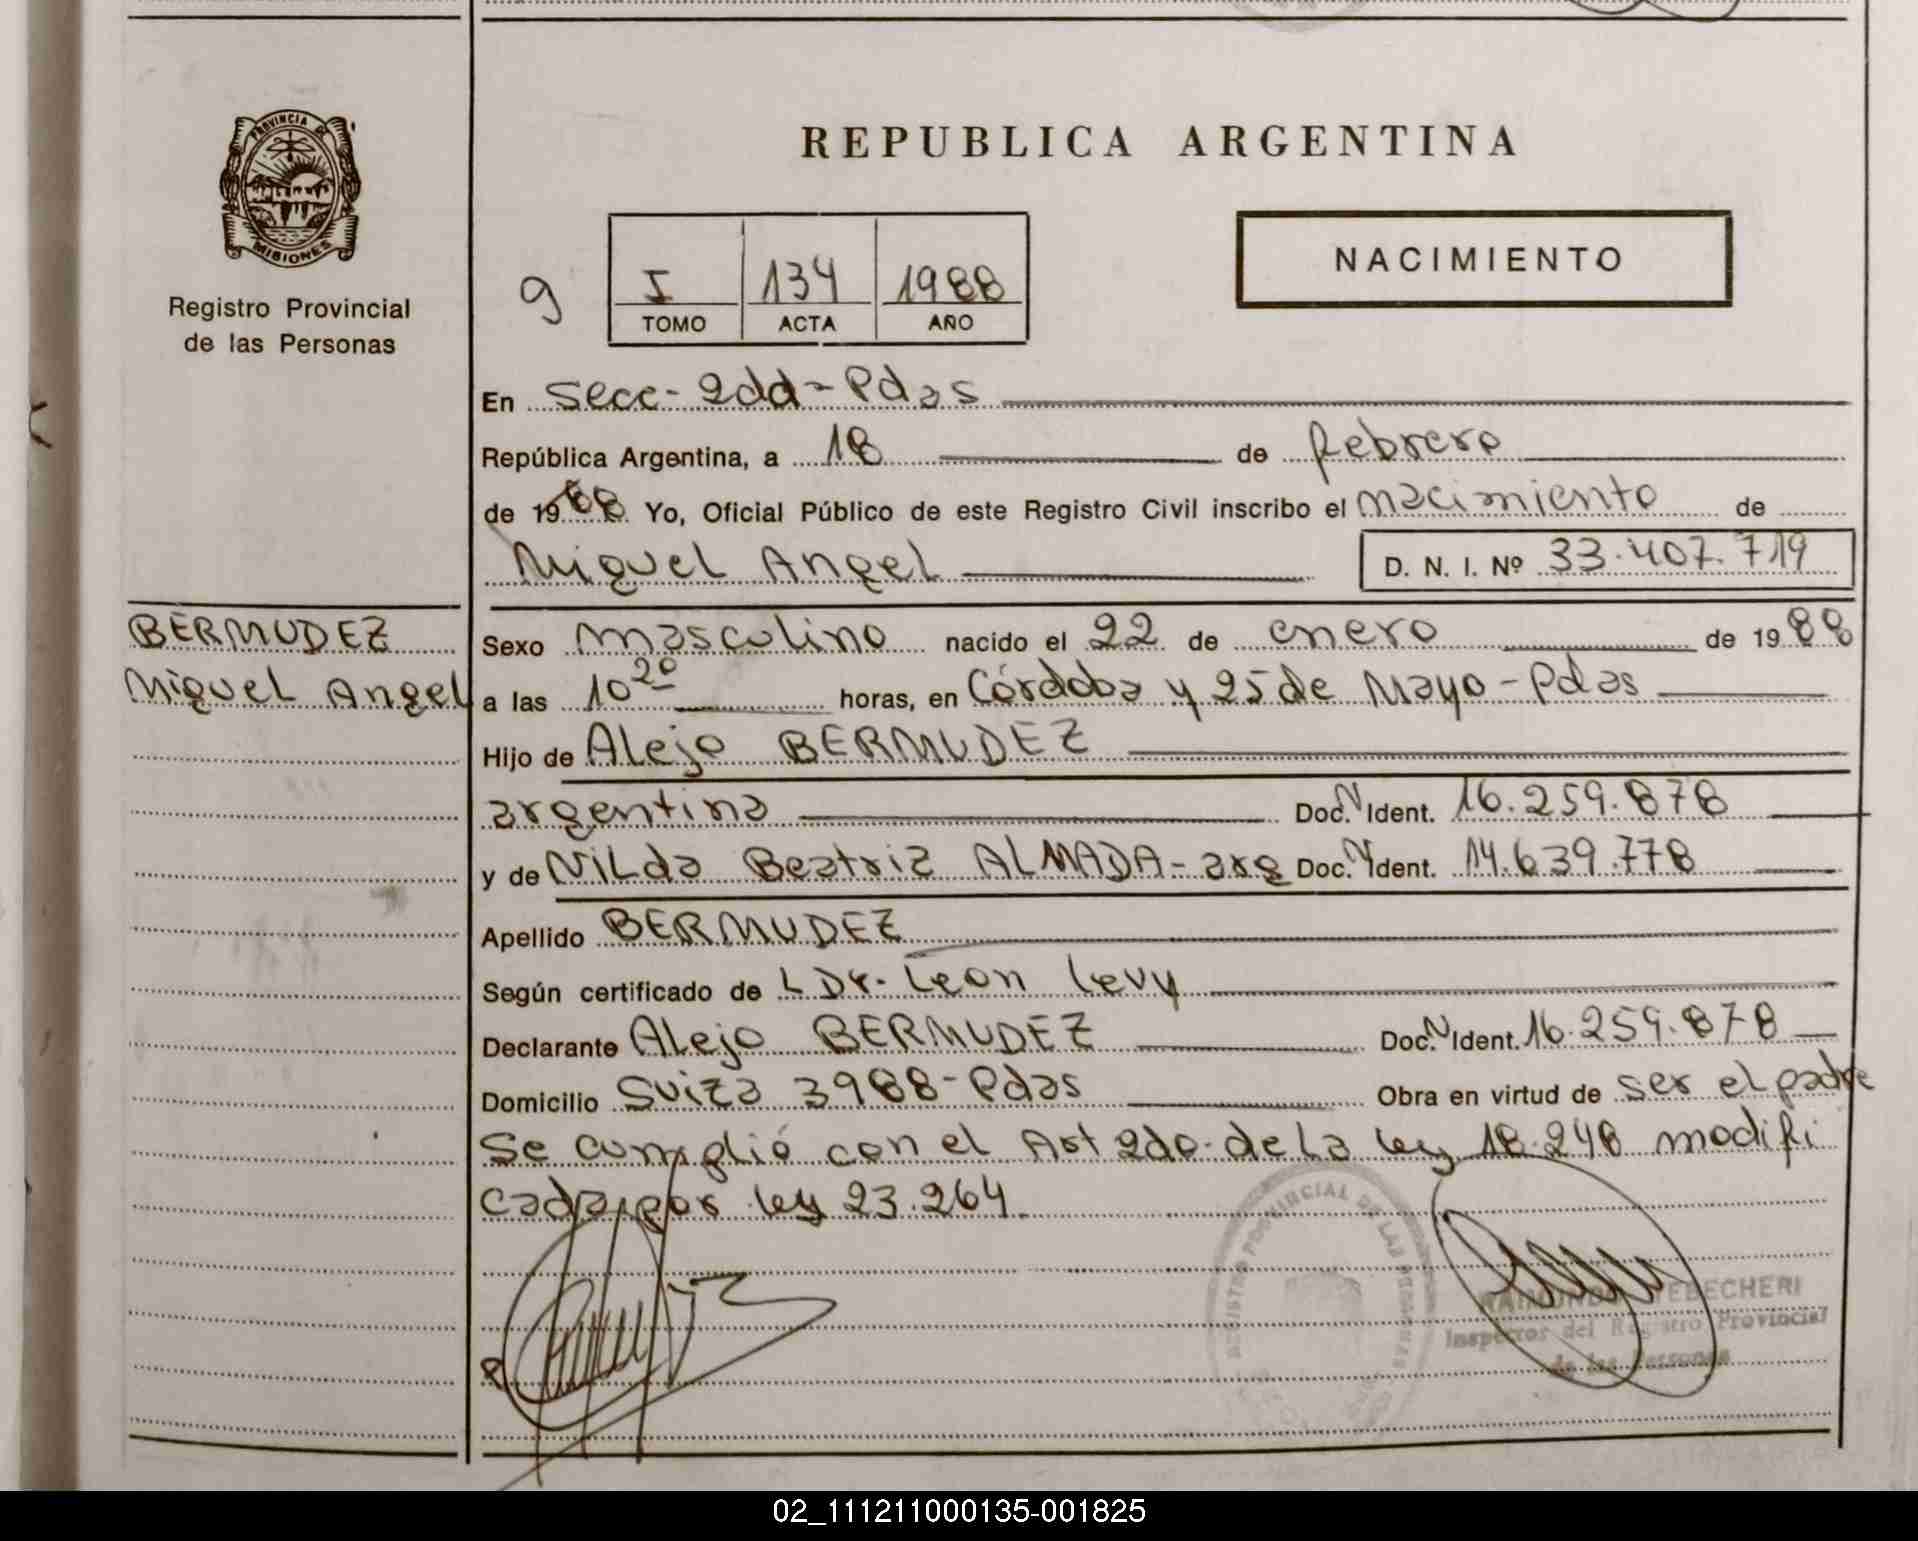 PROVINCIA DE
MISIONES
Registro Provincial
de las Personas
BERMUDEZ
Miguel Angel
REPUBLICA ARGENTINA
9
I 134 1988
TOMO ACTA AÑO
NACIMIENTO
En Secc- 2dd- Pdas
República Argentina, a 18 de febrero
de 1988 Yo, Oficial Público de este Registro Civil inscribo el nacimiento de
Miguel Angel D. N. I. Nº 33.407.719
Sexo masculino nacido el 22 de enero de 1988
a las 10 20 horas, en Córdoba y 25 de Mayo - Pdas
Hijo de Alejo BERMUDEZ
argentina Doc. N Ident. 16.259.878
y de Nilda Beatriz ALMADA - arg Doc. N Ident. 14.639.778
Apellido BERMUDEZ
Según certificado de L Dr. Leon Levy
Declarante Alejo BERMUDEZ Doc. N Ident. 16.259.878
Domicilio Suiza 3988 - Pdas Obra en virtud de ser el padre
Se cumplió con el Art 2do. de la ley 18.248 modifi
cada por ley 23.264.
REGISTRO PROVINCIAL DE LAS PERSONAS
RAIMUNDO
Inspector del Registro Provincial
de las Personas
02_111211000135-001825